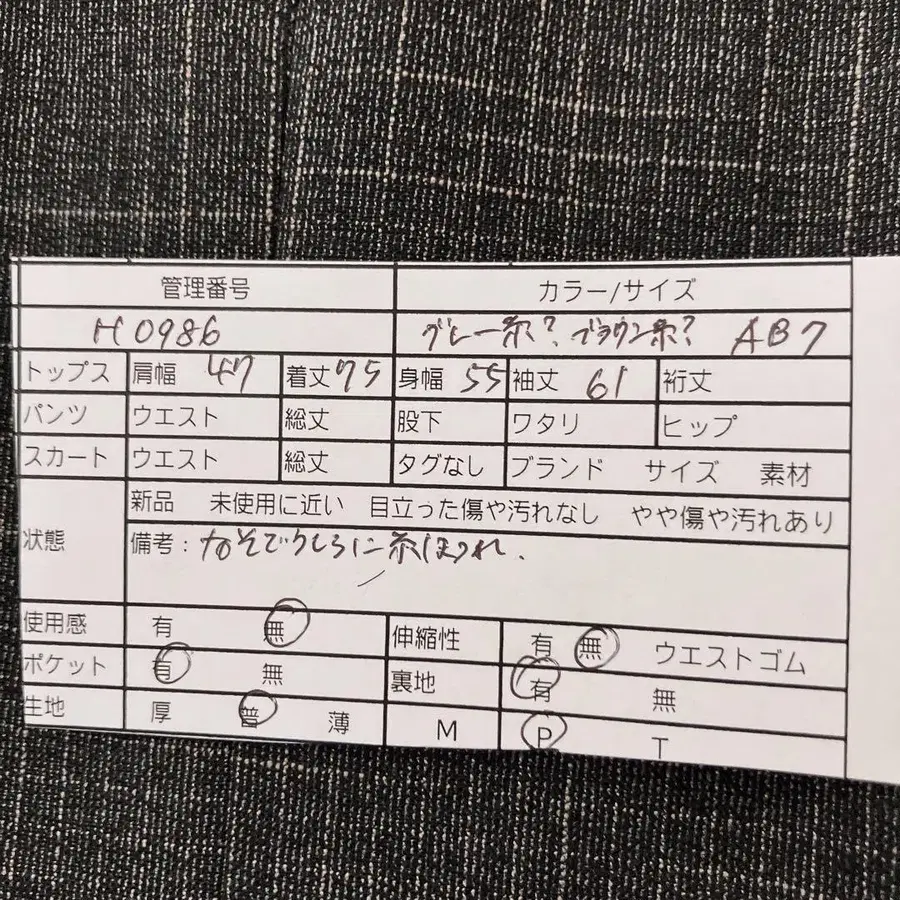 管理番号 カラー/サイズ
H0986 グレー系？、ブラウン系？ AB7
トップス 肩幅 47 着丈 75 身幅 55 袖丈 61 裄丈
パンツ ウエスト 総丈 股下 ワタリ ヒップ
スカート ウエスト 総丈 タグなし ブランド サイズ 素材
状態 新品 未使用に近い 目立った傷や汚れなし やや傷や汚れあり
備考：右そでうしろに糸ほつれ、
使用感 有 無 伸縮性 有 無 ウエストゴム
ポケット 有 無 裏地 有 無
生地 厚 普 薄 M P T